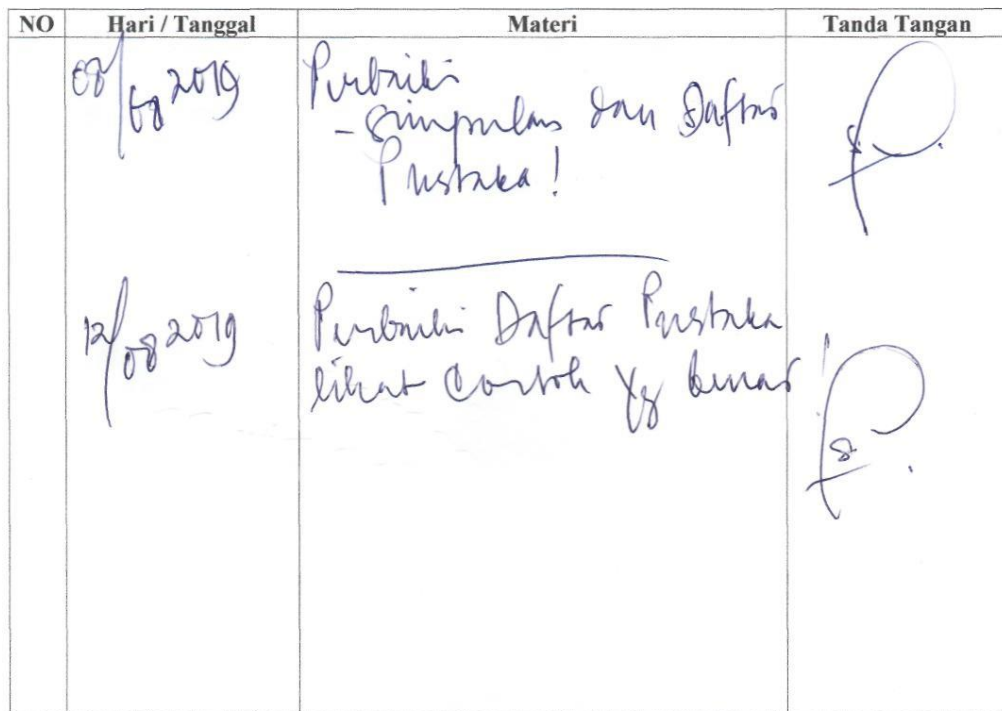 NO Hari / Tanggal Materi Tanda Tangan
08/08 2019 Perbaiki
- Simpulan dan Daftar
Pustaka!
12/08 2019 Perbaiki Daftar Pustaka
lihat Contoh Yg benar!